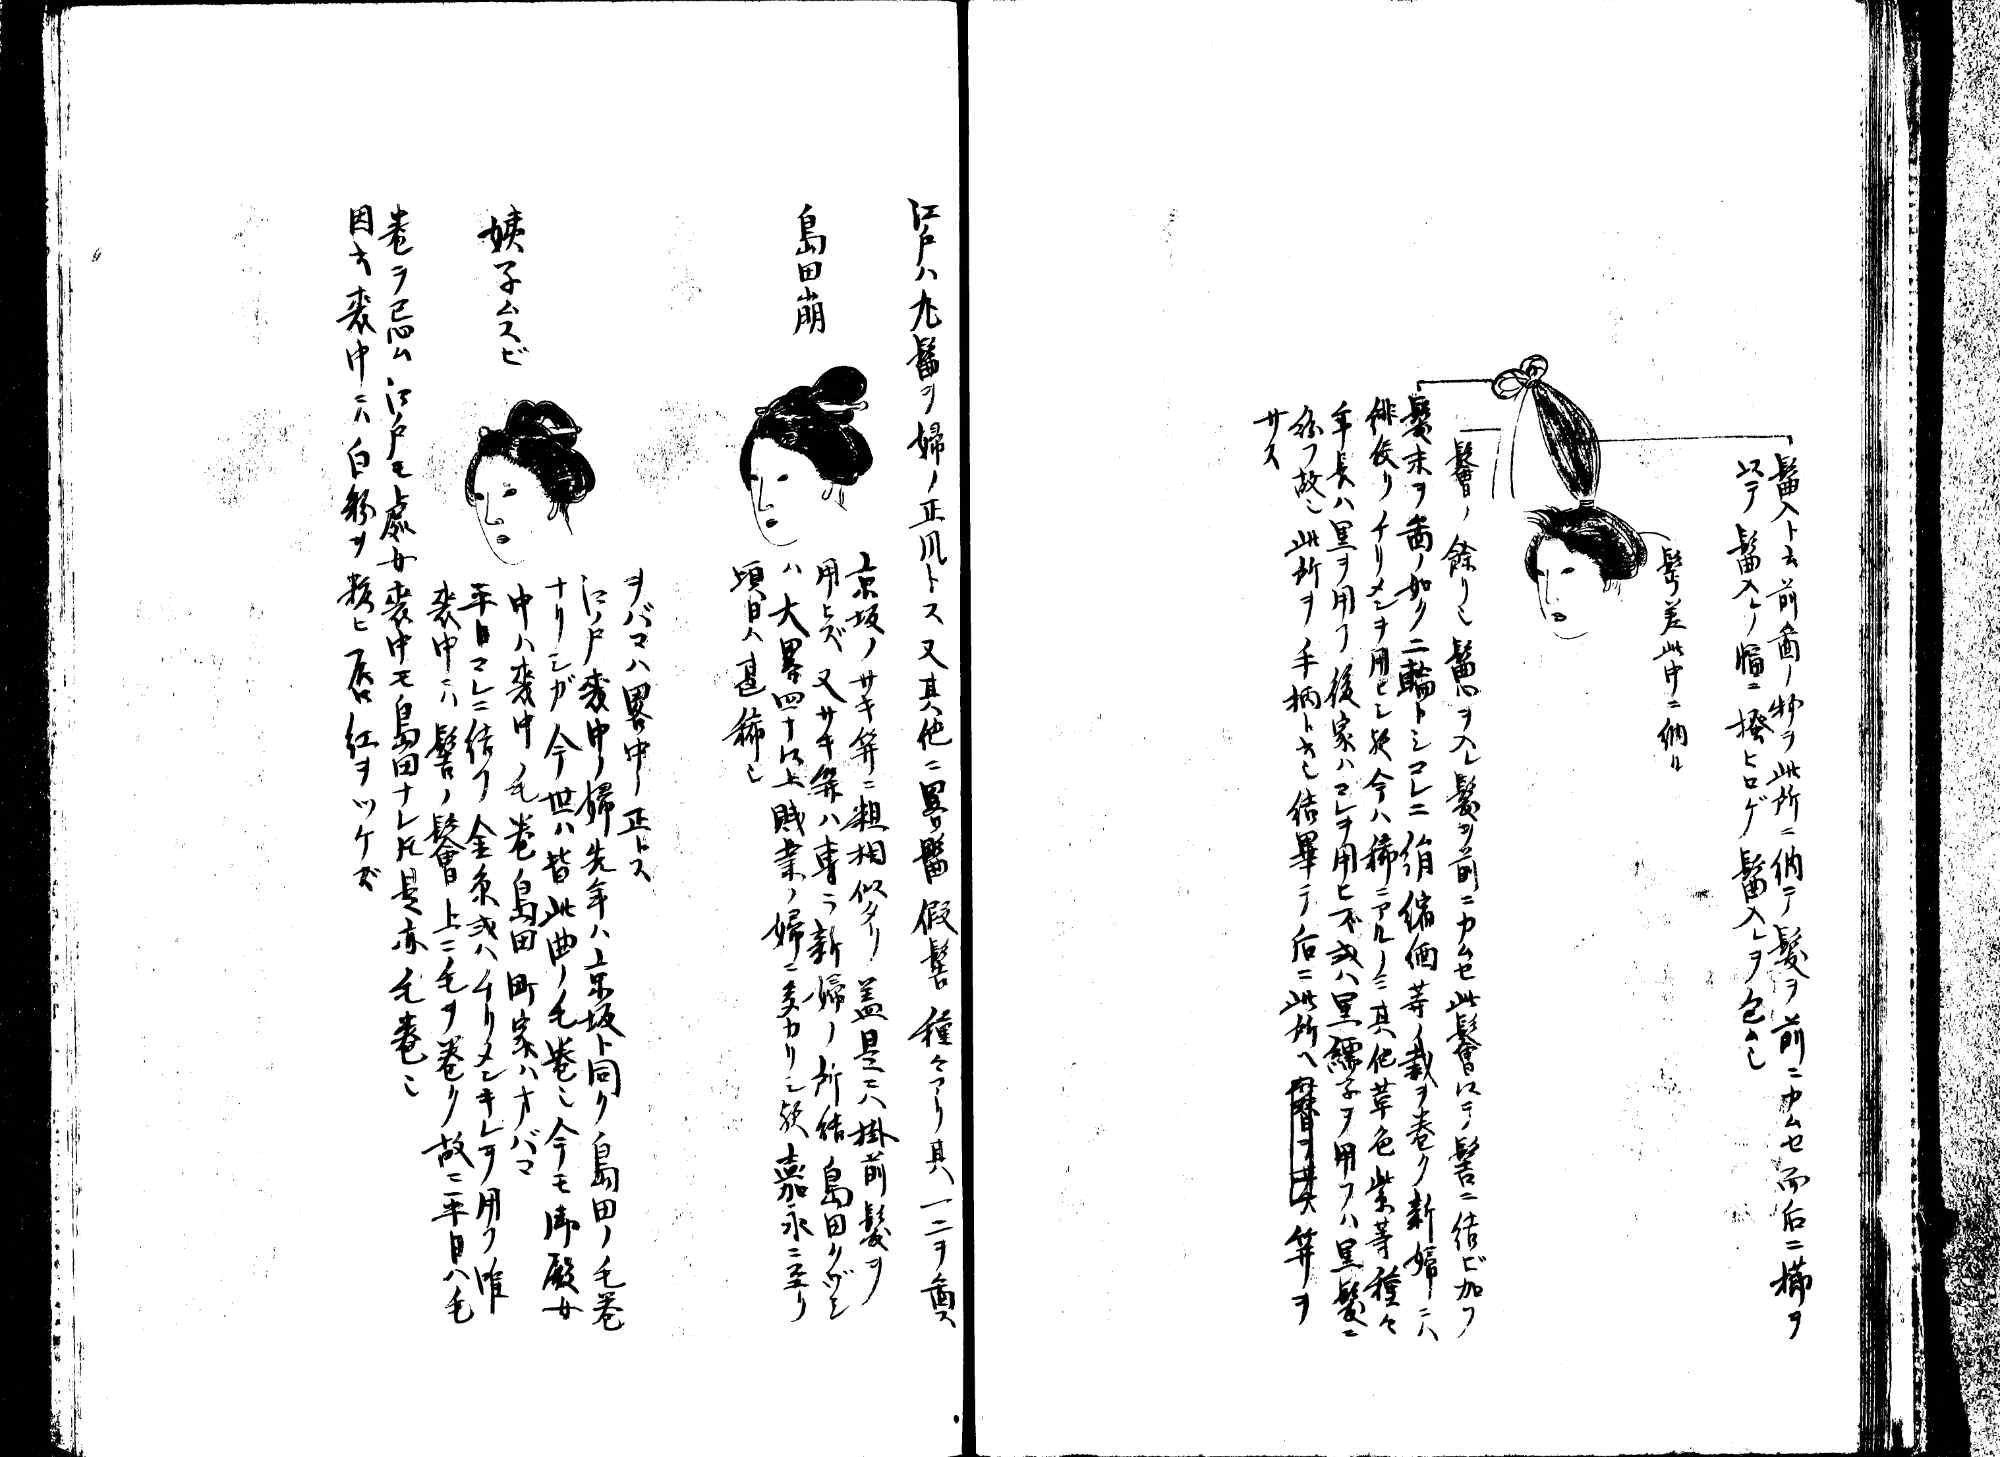 髷入ト云前図ノ物ヲ此所ニ納テ髪ヲ前ニカムセ而后ニ櫛ヲ
以テ髷入レノ幅ニ撥ヒロゲ髷入レヲ包ム也
髷差此中ニ納ル
髻ノ餘リ也髷心ヲ入レ髪ヲ前ニカムセ此髻以テ髻ニ結ビ加フ
髪末ヲ図ノ如ク二輪トシコレニ絹縮緬等ノ裁ヲ巻ク新婦ニハ
緋絞リノチリメンヲ用ヒシ㰲今ハ稀ニアルノミ其他草色紫等種々
年長ハ黒ヲ用フ後家ハコレヲ用ヒズ或ハ黒繻子ヲ用フハ黒髪ニ
紛フ故也此所ヲ手柄ト云也結畢テ后ニ此所ヘ笄ヲ
サス
江戸ハ丸髷ヲ婦ノ正風トス又其他ニ畧髷假髻種々アリ其一二ヲ図ス
島田崩
京坂ノサキ笄ニ粗相似タリ蓋是ニハ掛前髪ヲ
用ヒズ又サキ笄ハ専ラ新婦ノ所結島田クヅシ
ハ大畧四十以上賎業ノ婦ニ多カリシ㰲嘉永ニ至リ
頃日ハ甚稀也
姨子ムスビ
ヲバコハ畧中ノ正トス
江戸喪中ノ婦先年ハ京坂ト同ク島田ノ毛巻
ナリシガ今世ハ皆此曲ノ毛巻也今モ御殿女
中ハ喪中ノ毛巻島田町家ハオバコ
平日コレニ結フ金糸或ハチリメンキレヲ用フ唯
喪中ニハ髻ノ上ニ毛ヲ巻ク故ニ平日ハ毛
巻ヲ忌ム江戸モ処女喪中モ島田ナレ𪜈是亦毛巻也
因云喪中ニハ白粉ヲ粧ヒ唇紅ヲツケズ